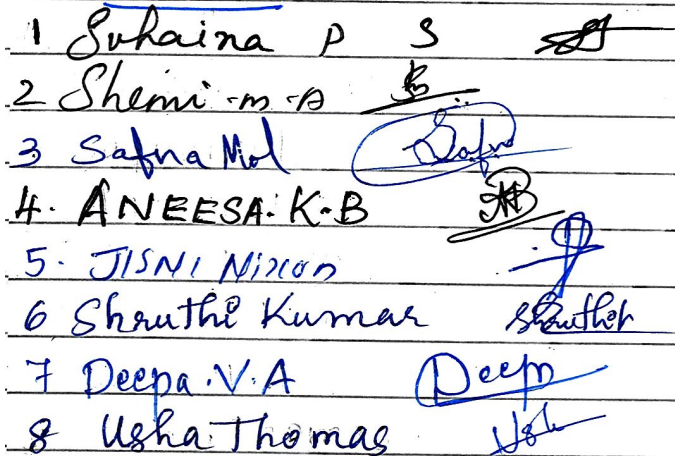 1 Suhaina P S
2 Shemi .m .A
3 Safna Mol Safna
4. ANEESA. K.B
5. JISNI Nixon
6 Shruthi Kumar Shruthi
7 Deepa .V. A Deepa
8 Usha Thomas Usha